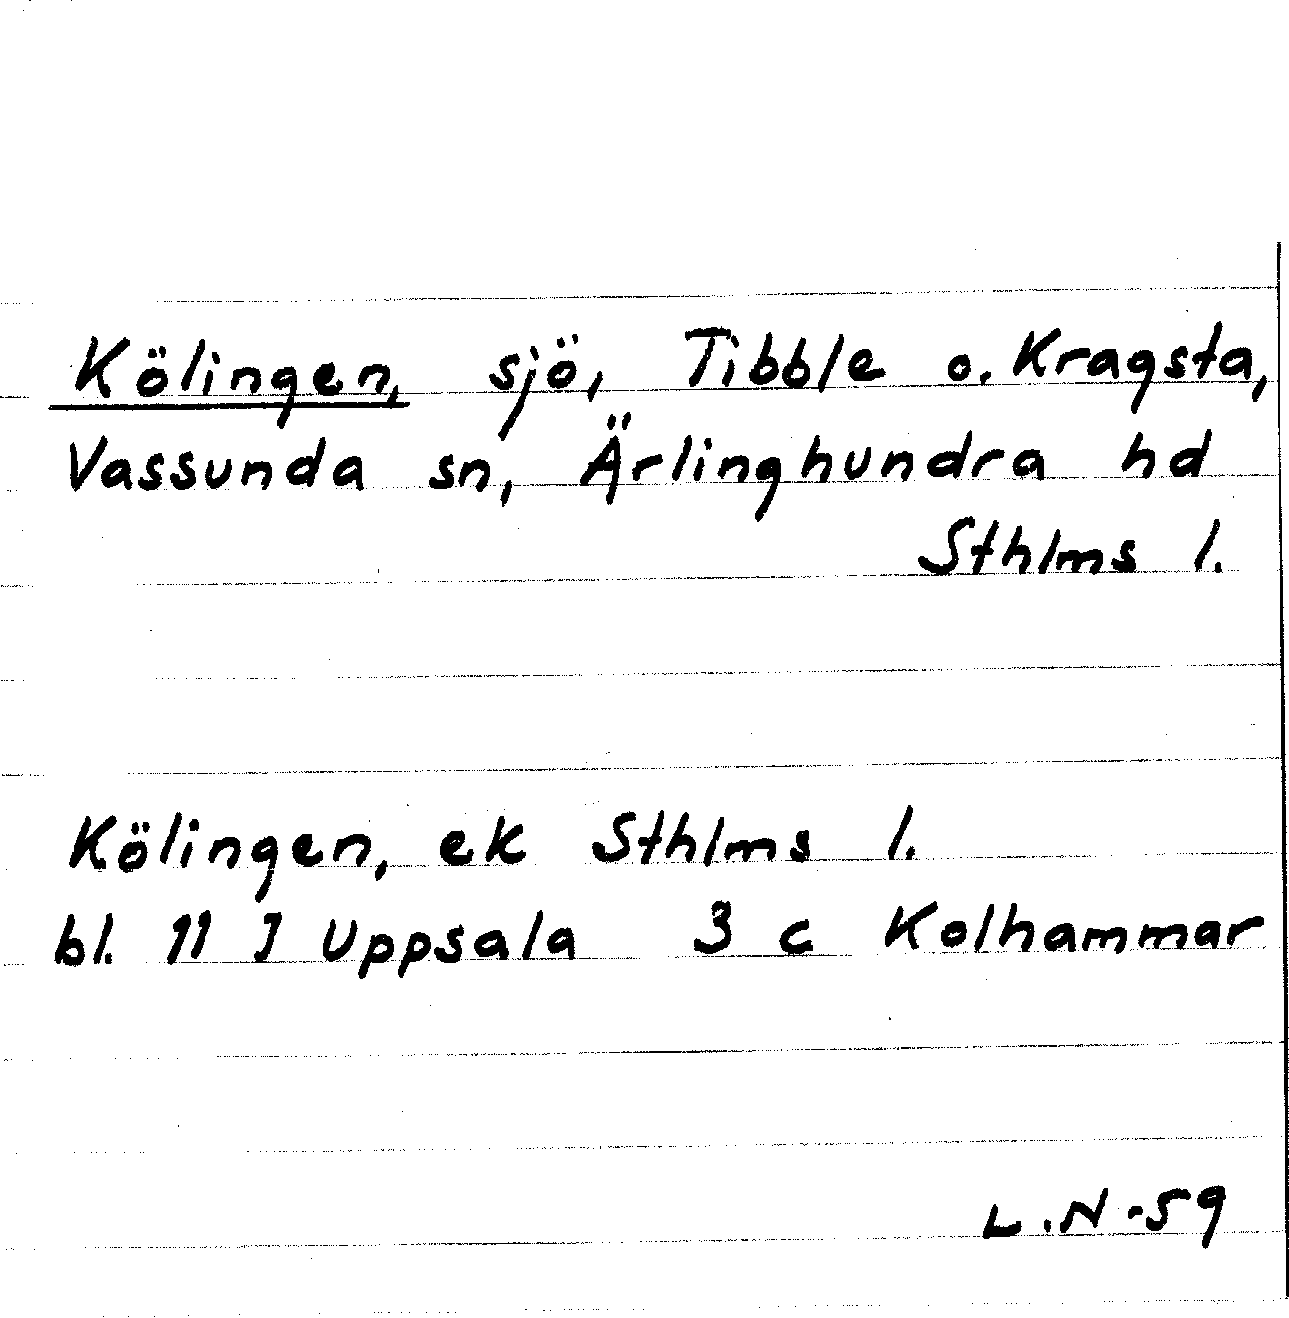 Kölingen, sjö, Tibble o. Kragsta,
Vassunda sn, Ärlinghundra hd
Sthlms l.
Kölingen, ek Sthlms l.
bl. 11 I Uppsala 3 c Kolhammar
L.N-59